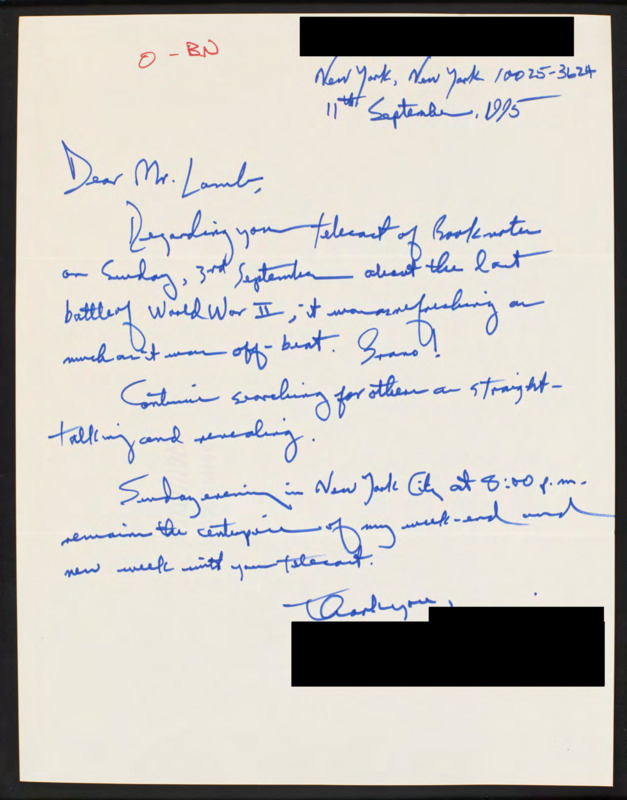 O - BN
New York, New York 10025-3624
11th September, 1995
Dear Mr. Lamb,
Regarding your telecast of Booknotes
on Sunday, 3rd September about the last
battle of World War II, it was as refreshing as
much as it was off-beat. Bravo!
Continue searching for others as straight-
talking and revealing.
Sunday evening in New York City at 8:00 p.m.
remains the centerpiece of my week-end and
new week with your telecast.
Thank you,